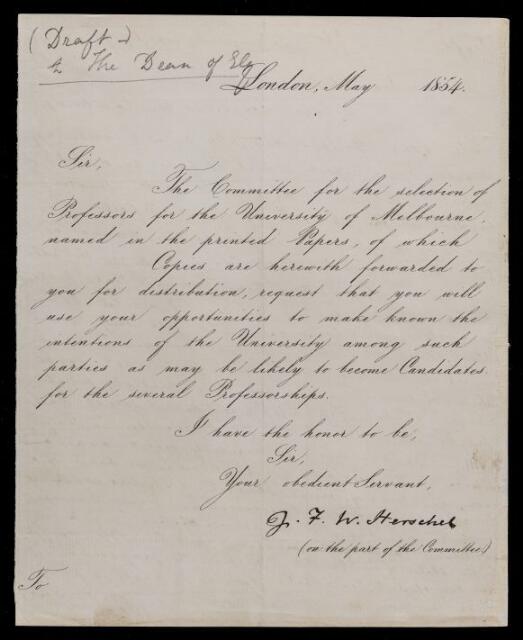 (Draft)
to The Dean of Ely
London, May 1854.
Sir,
The Committee for the selection of
Professors for the University of Melbourne,
named in the printed Papers, of which
Copies are herewith forwarded to
you for distribution, request that you will
use your opportunities to make known the
intentions of the University among such
parties as may be likely to become Candidates
for the several Professorships.
I have the honor to be,
Sir,
Your obedient Servant,
J. F. W. Herschel
(on the part of the Committee)
To